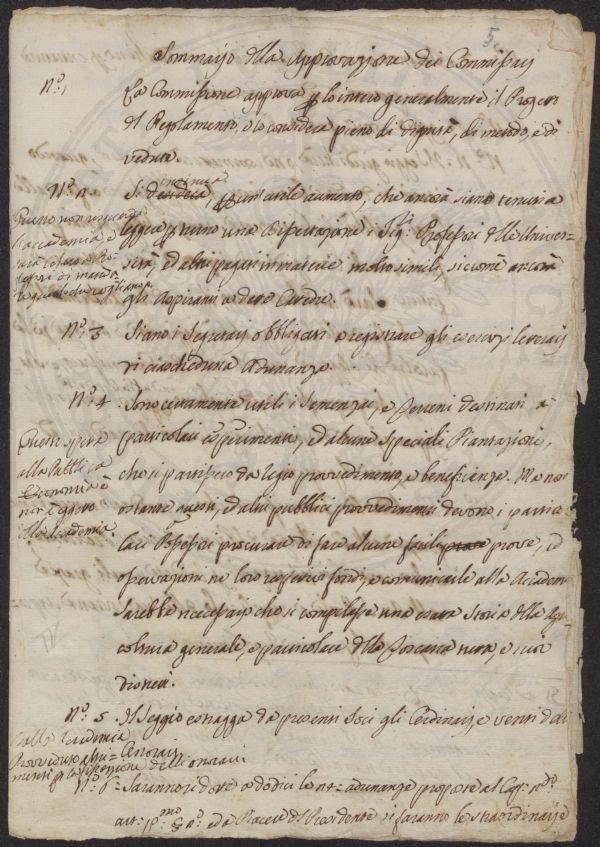 5
Sommario della Approvazione dei Commissarj
N.º 1 La Commissione approva per lo intero generalmente il Progetto
di Regolamento, e lo considera pieno di dignità, di metodo, e di
vedute.
N.º 2 Si desidera per un' utile aumento, che ancora siano tenuti a
leggere per turno una Dissertazione i Sig.ri Professori delle Univer-
sità, ed altri pagati in materie molto simili, siccome ancora
gli Aspiranti a dette Cattedre.
non
l'accademia e
N.º 3 Siano i Segretarj obbligati a registrare gli esercizj letterarj
di ciascheduna Adunanza.
N.º 4 Sono certamente utili i Semenzai, e Terreni destinati a
particolari esperimenti, ed alcune speciali Piantazioni,
che si partisca da regio provvedimento, e beneficienza. Ma non
ostante questi, ed altri pubblici provvedimenti devono i partico-
lari Possessori procurare di fare alcune prove, ed
osservazioni ne loro respettivi fondi, e comunicarle alla Accademia
Sarebbe necessario che si compilasse una esatta storia della Agri-
coltura generale, e particolare della Toscana nostra, e suoi
Questo spetta
alla Pubblica
Economia e
non è oggetto
della Accademia.
N.º 5 Il Seggio estragga da presenti Soci gli Ordinarj, e venti
Onorarj
dalla Accademia
Provveduto altri-
menti per la elezione delli onorarj
N.º 6 Saranno ridotte a dodici le adunanze proposte al Cap.
art. ed a Piacere del Presidente si faranno le straordinarie